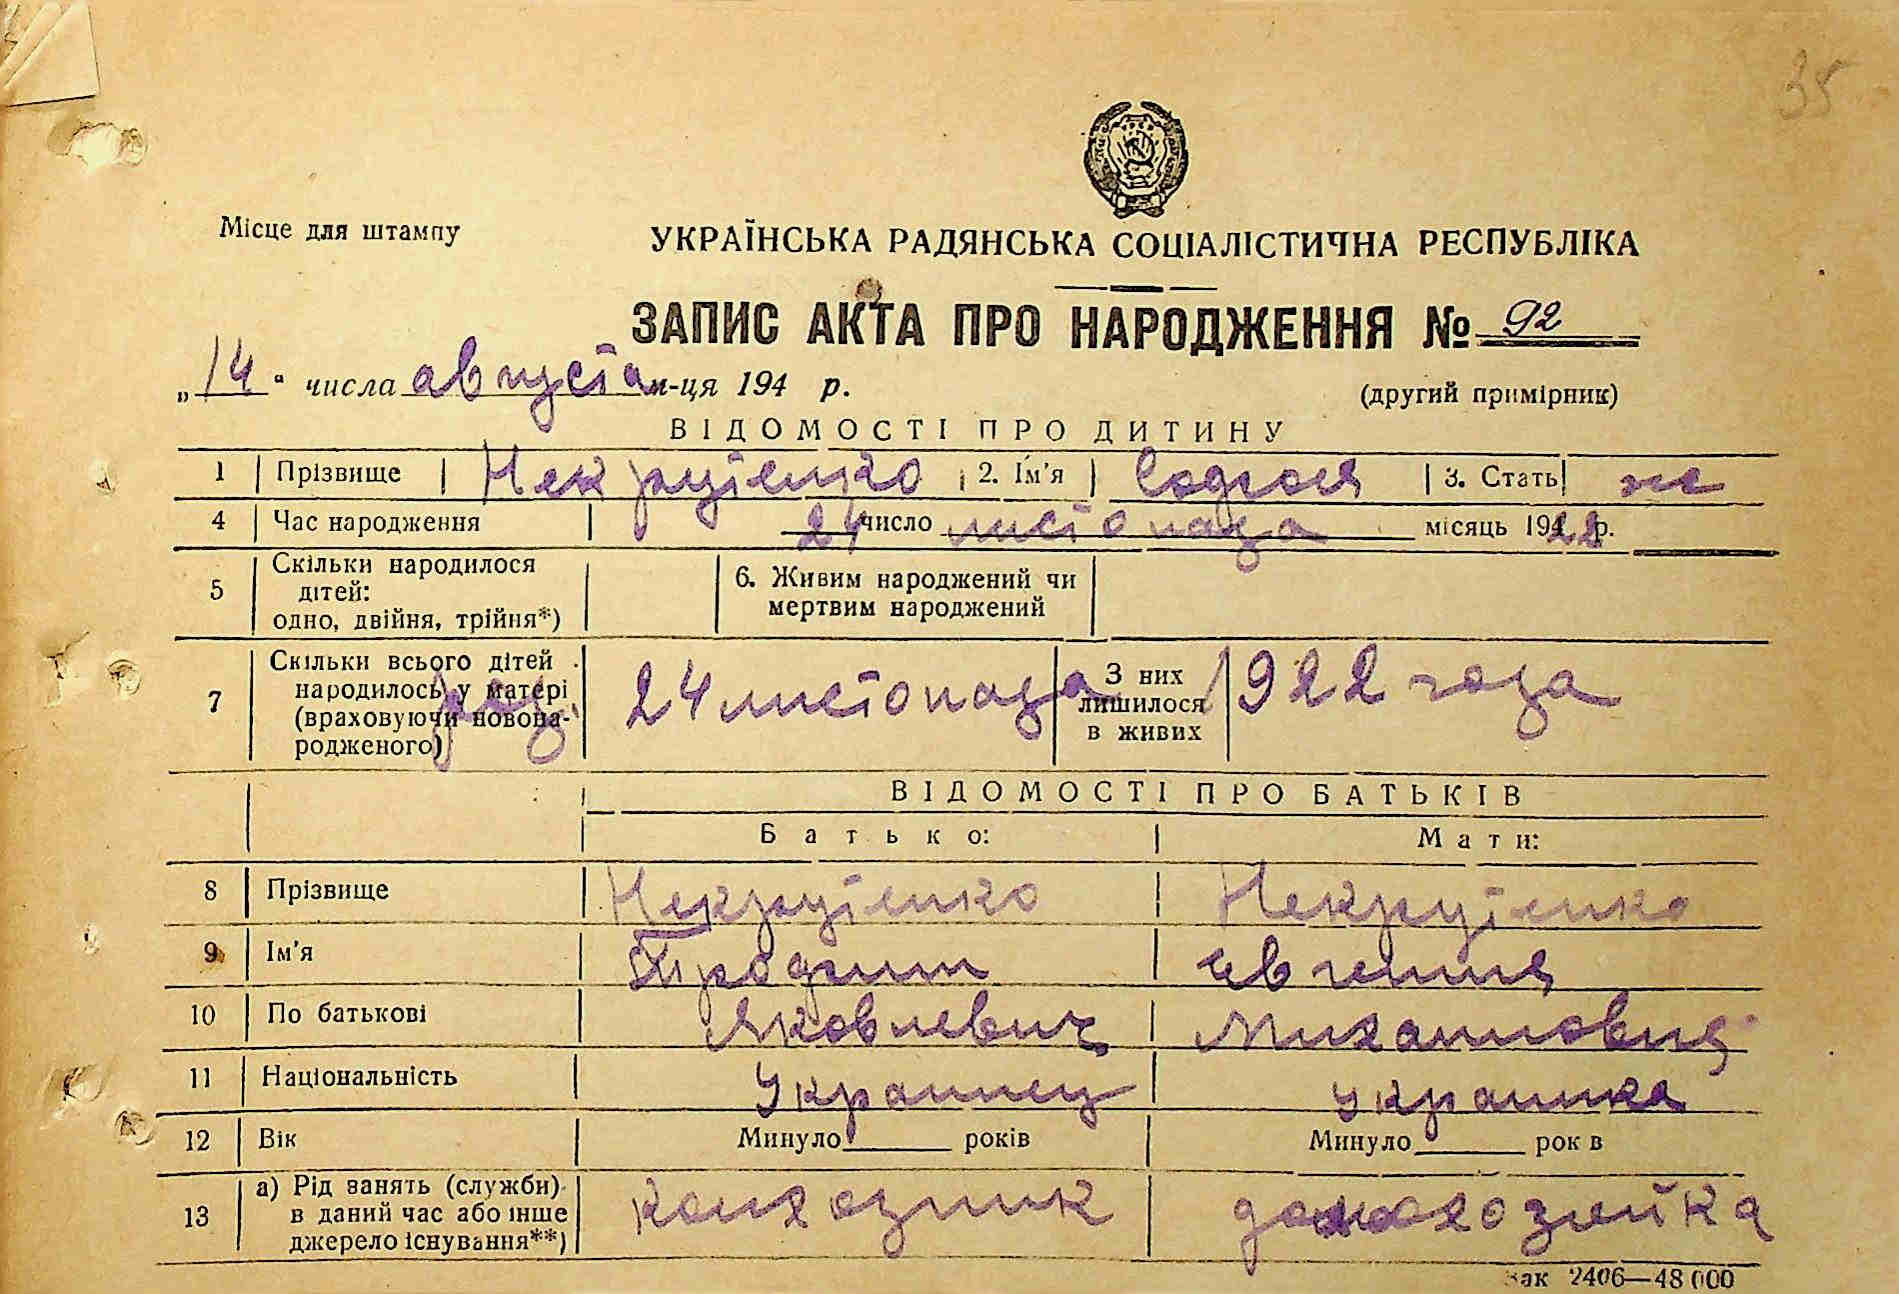 35
Місце для штампу
УКРАЇНСЬКА РАДЯНСЬКА СОЦІАЛІСТИЧНА РЕСПУБЛІКА
ЗАПИС АКТА ПРО НАРОДЖЕННЯ № 92
„14“ числа августа м-ця 194 р.
(другий примірник)
ВІДОМОСТІ ПРО ДИТИНУ
1 Прізвище 2. Ім'я София 3. Стать ж
4 Час народження 24 число листопада місяць 1922 р.
5 Скільки народилося дітей: одно, двійня, трійня*) 6. Живим народжений чи мертвим народжений
7 Скільки всього дітей народилось у матері (враховуючи новонародженого) 24 листопада З них лишилося в живих 1922 года
ВІДОМОСТІ ПРО БАТЬКІВ
Батько: Мати:
8 Прізвище
9 Ім'я Трофим Евгения
10 По батькові Яковлевич Михайловна
11 Національність Украинец Украинка
12 Вік Минуло років Минуло рок в
13 а) Рід занять (служби) в даний час або інше джерело існування**) колхозник домохозяйка
Зак 2406—48 000